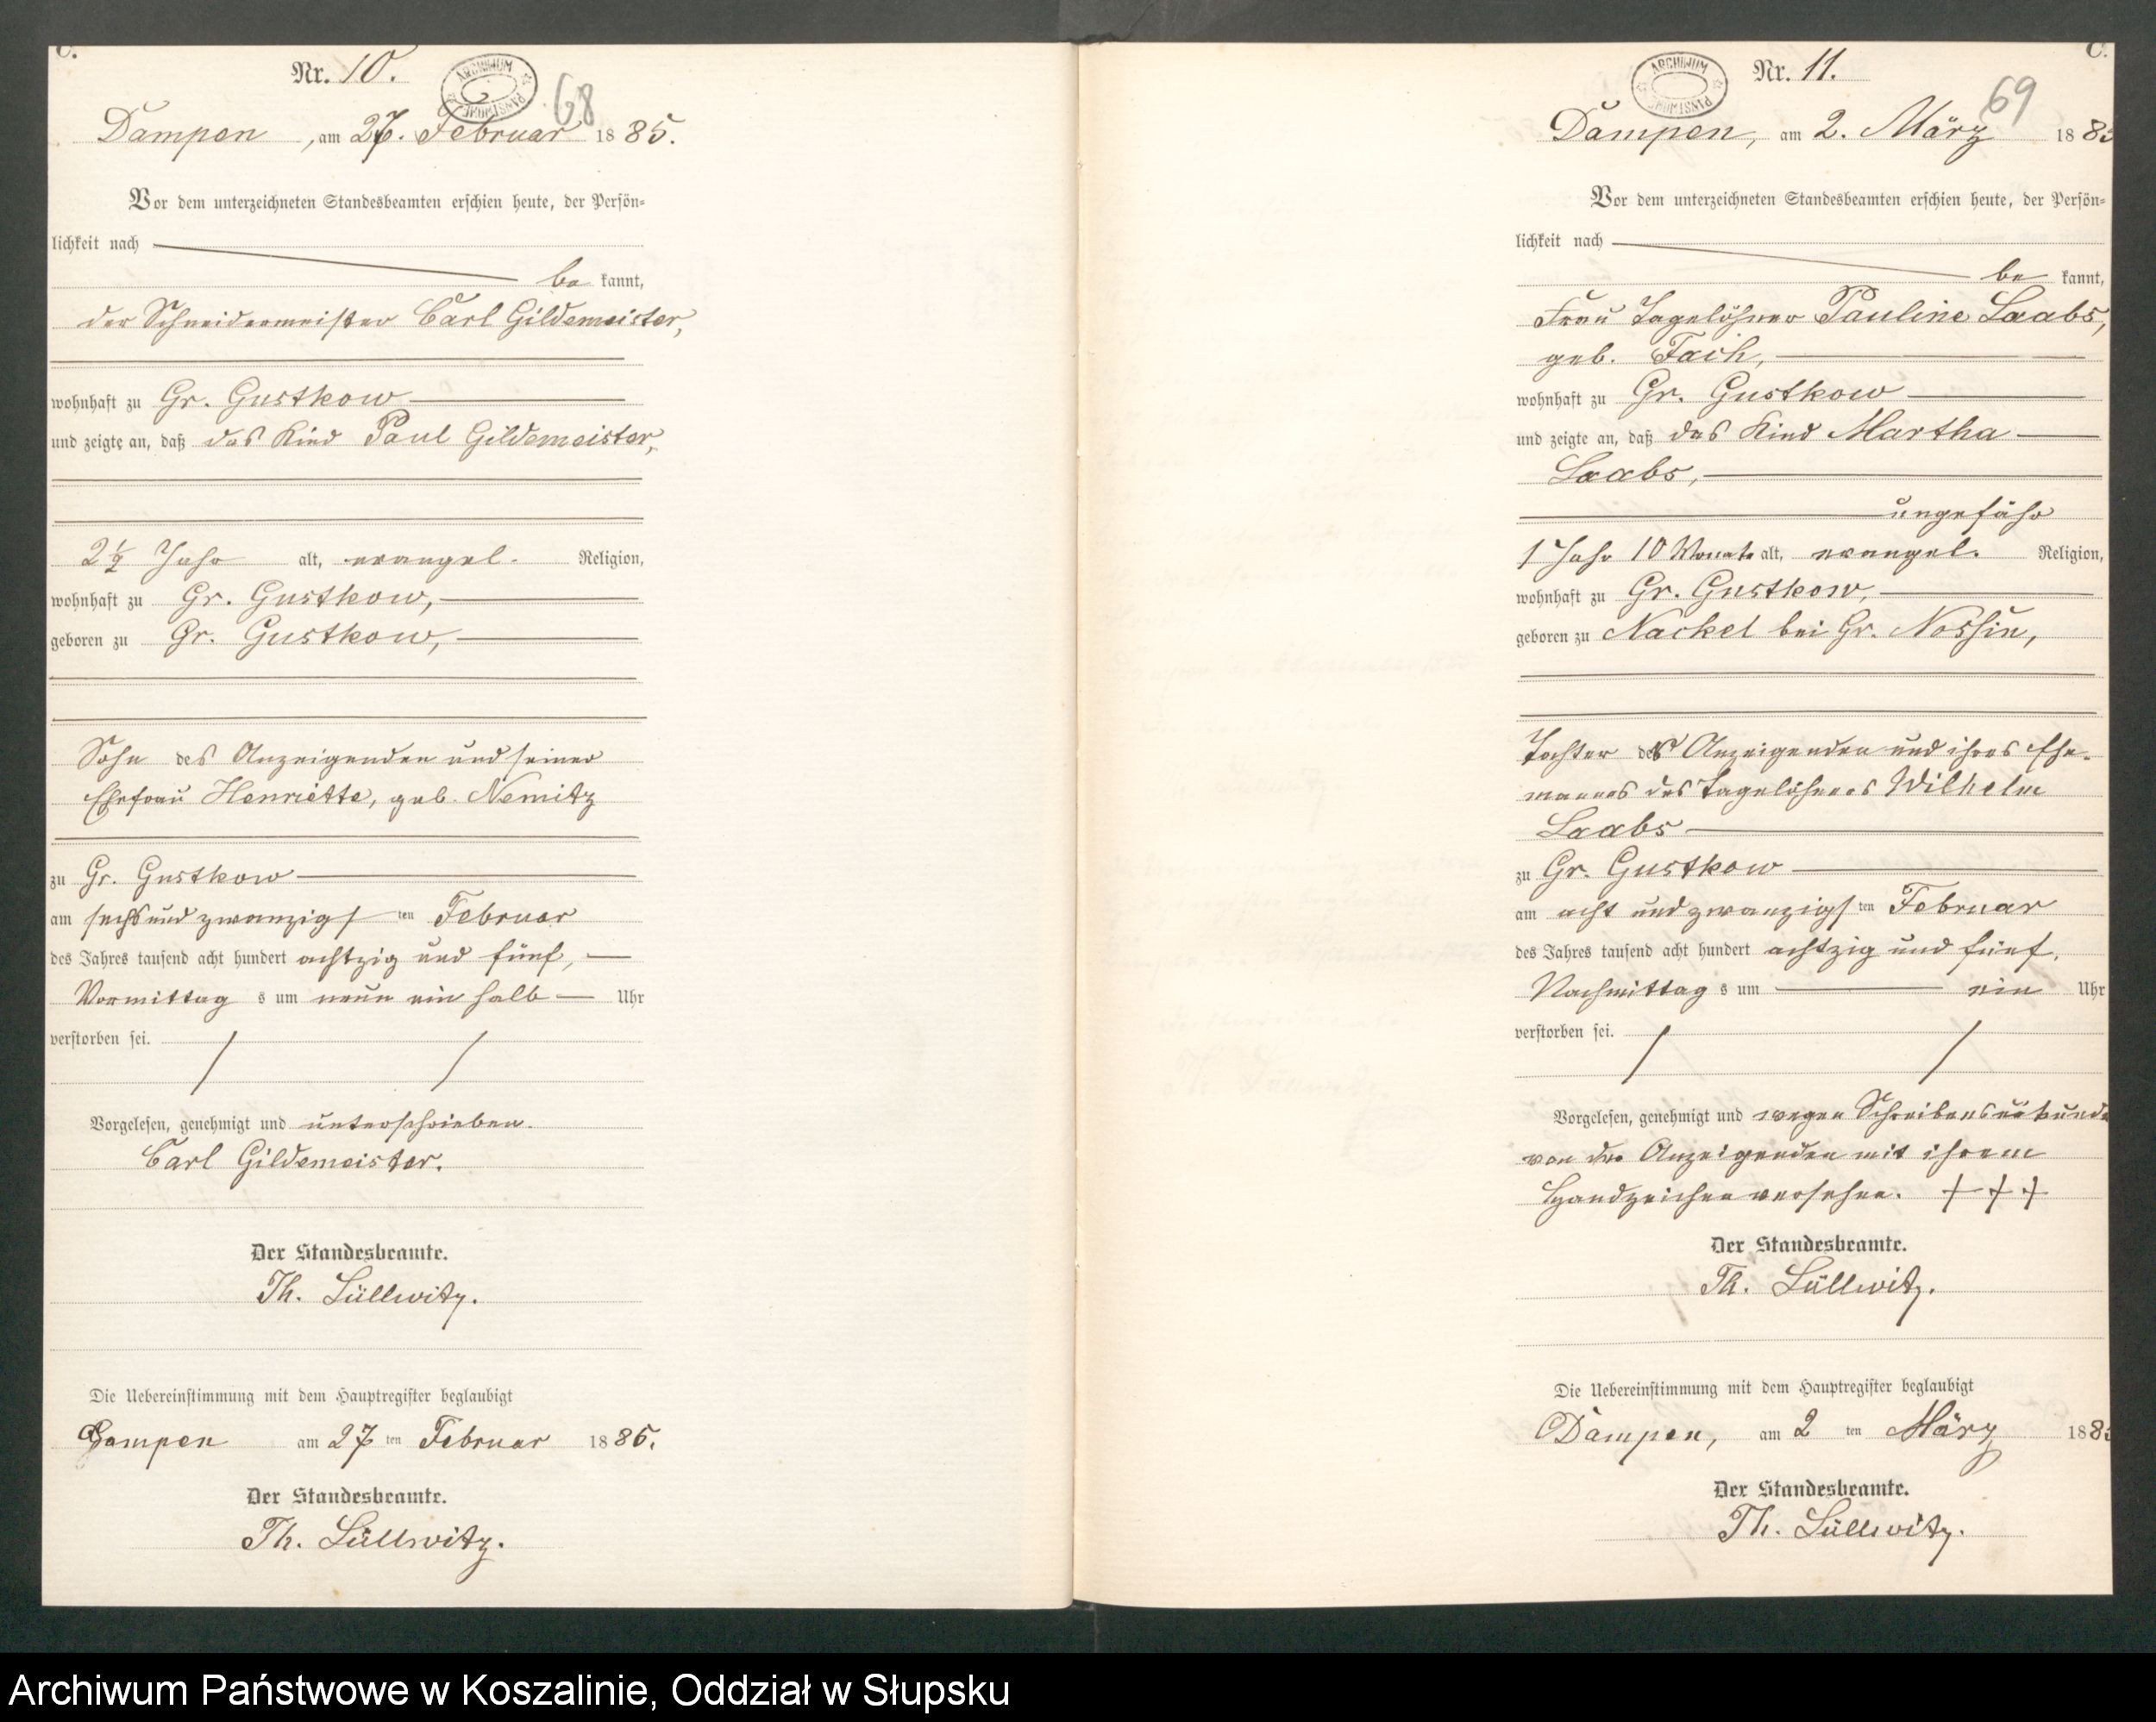 C.
Nr. 10.
ARCHIWUM PAŃSTWOWE
68
Dampen, am 27. Februar 1885.
Vor dem unterzeichneten Standesbeamten erschien heute, der Persön-
lichkeit nach
be kannt,
der Schneidermeister Carl Gildemeister,
wohnhaft zu Gr. Gustkow
und zeigte an, daß das Kind Paul Gildemeister,
2½ Jahr alt, evangel. Religion,
wohnhaft zu Gr. Gustkow,
geboren zu Gr. Gustkow,
Sohn des Anzeigenden und seiner
Ehefrau Henriette, geb. Nemitz
zu Gr. Gustkow
am sechs und zwanzigsten Februar
des Jahres tausend acht hundert achtzig und fünf,
Vormittags um neun ein halb Uhr
verstorben sei.
Vorgelesen, genehmigt und unterschrieben.
Carl Gildemeister.
Der Standesbeamte.
Th. Lüllwitz.
Die Uebereinstimmung mit dem Hauptregister beglaubigt
Dampen am 27ten Februar 1885.
Der Standesbeamte.
Th. Lüllwitz.
C.
Nr. 11.
ARCHIWUM PAŃSTWOWE
69
Dampen, am 2. März 188
Vor dem unterzeichneten Standesbeamten erschien heute, der Persön-
lichkeit nach
be kannt,
Frau Tagelöhner Pauline Laabs,
geb. Fach,
wohnhaft zu Gr. Gustkow
und zeigte an, daß das Kind Martha
Laabs,
ungefähr
1 Jahr 10 Monate alt, evangel. Religion,
wohnhaft zu Gr. Gustkow,
geboren zu Nackel bei Gr. Nossin,
Tochter der Anzeigenden und ihres Ehe-
mannes des Tagelöhners Wilhelm
Laabs
zu Gr. Gustkow
am acht und zwanzigsten Februar
des Jahres tausend acht hundert achtzig und fünf,
Nachmittags um ein Uhr
verstorben sei.
Vorgelesen, genehmigt und wegen Schreibensunkunde
von der Anzeigenden mit ihrem
Handzeichen versehen. + + +
Der Standesbeamte.
Th. Lüllwitz.
Die Uebereinstimmung mit dem Hauptregister beglaubigt
Dampen, am 2ten März 188
Der Standesbeamte.
Th. Lüllwitz.
Archiwum Państwowe w Koszalinie, Oddział w Słupsku